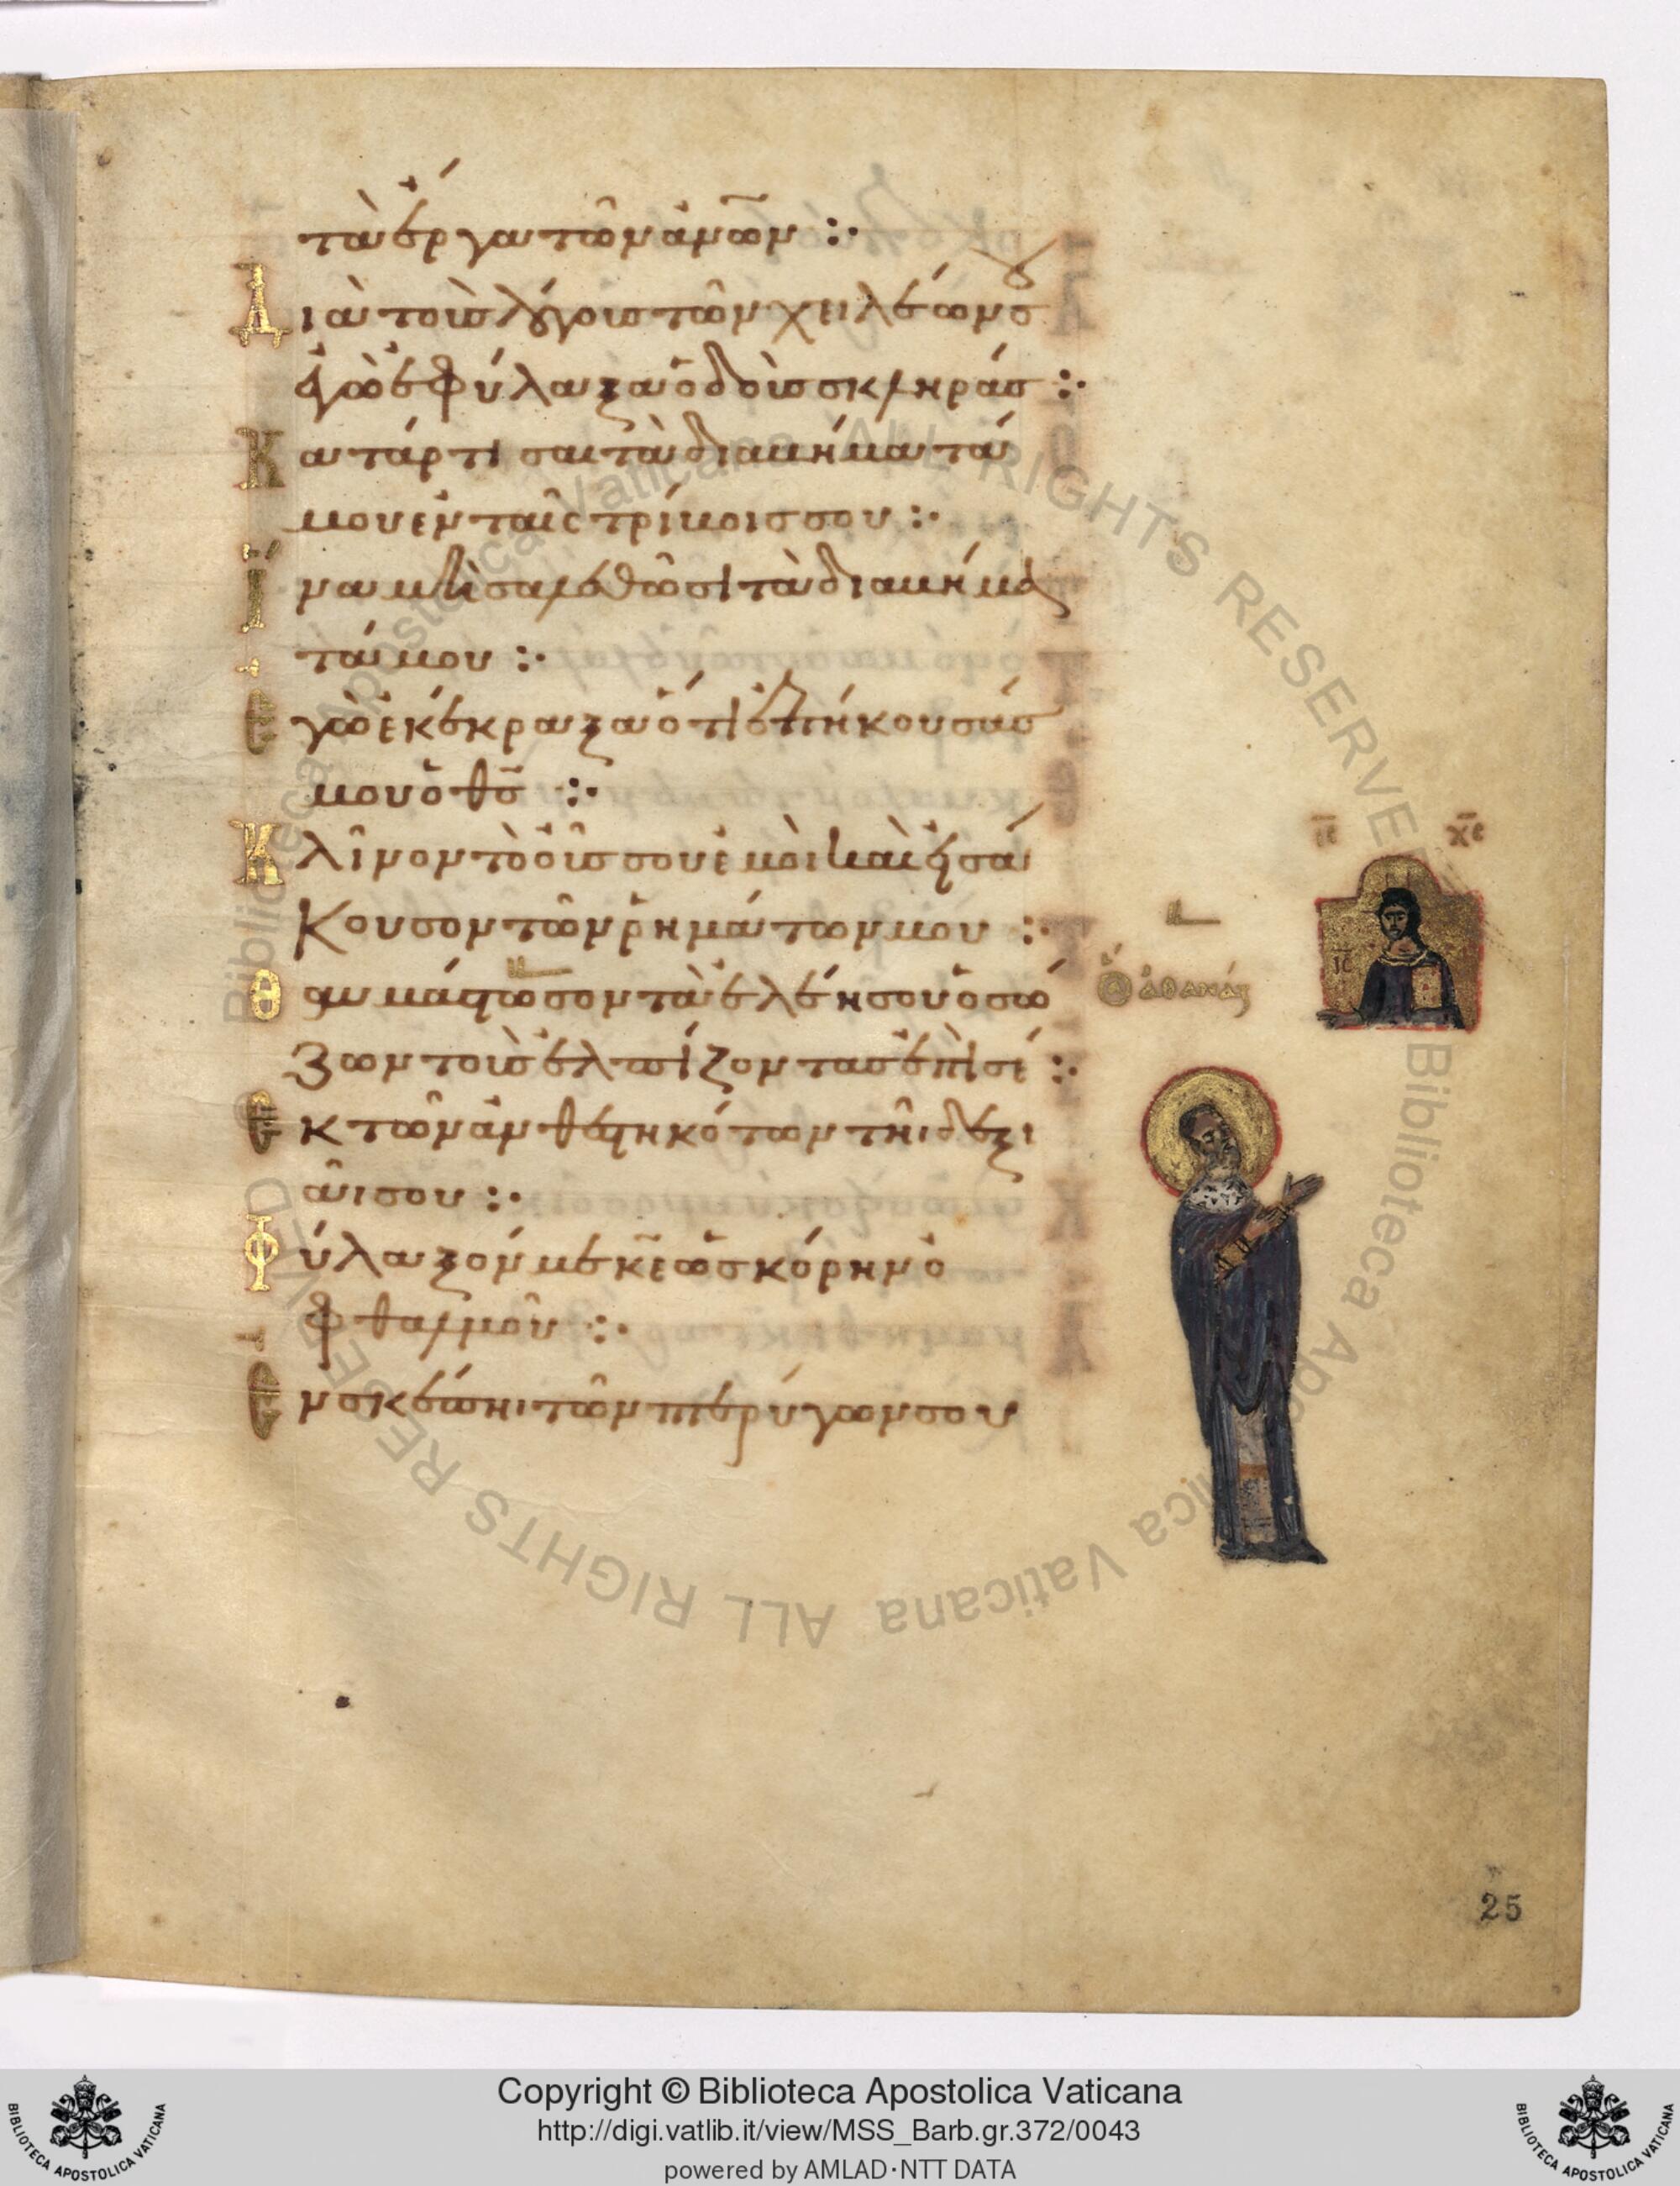 τὰ ἔργα τῶν ἀν̅ω̅ν :·
Διὰ τοὺς λόγους τῶν χειλέων σου
ἐγὼ ἐφύλαξα ὁδοὺς σκληράς :·
Κατάρτισαι τὰ διαβήματά
μου ἐν ταῖς τρίβοις σου :·
Ἵνα μὴ σαλευθῶσι τὰ διαβήμα
τά μου :·
Ἐγὼ ἐκέκραξα ὅτι ἐπήκουσάς
μου ὁ θ̅ς̅ :·
Κλῖνον τὸ οὖς σου ἐμοὶ καὶ εἰσά
κουσον τῶν ῥημάτων μου :·
Θαυμάστωσον τὰ ἐλέη σου ὁ σώ
ζων τοὺς ἐλπίζοντας ἐπὶ σέ :·
Ἐκ τῶν ἀνθεστηκότων τῆι δεξι
ᾶι σου :·
Φύλαξόν με κ̅ε̅ ὡς κόρην ὀ
φθαλμοῦ :·
Ἐν σκέπηι τῶν πτερύγων σου
ι̅ς̅ χ̅ς̅
ι̅ς̅
ὁ ἅ ἀθανάς
25
Biblioteca Apostolica Vaticana ALL RIGHTS RESERVED
Biblioteca Apostolica Vaticana ALL RIGHTS RESERVED
Copyright © Biblioteca Apostolica Vaticana
http://digi.vatlib.it/view/MSS_Barb.gr.372/0043
powered by AMLAD·NTT DATA
BIBLIOTECA APOSTOLICA VATICANA
BIBLIOTECA APOSTOLICA VATICANA